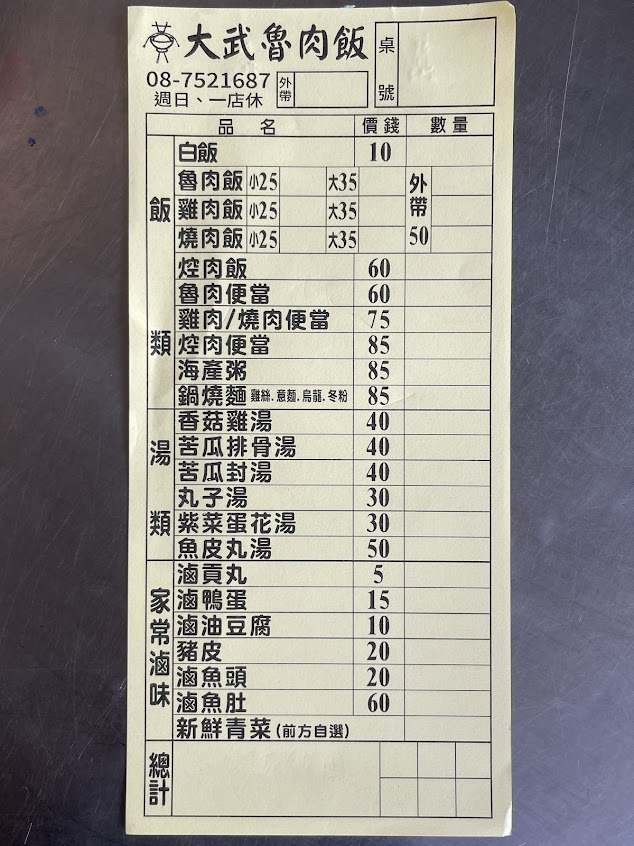 大武魯肉飯
桌號
08-7521687
週日、一店休
外帶
品名 價錢 數量
飯類
白飯 10
魯肉飯 小25 大35
雞肉飯 小25 大35
燒肉飯 小25 大35
外帶50
焢肉飯 60
魯肉便當 60
雞肉/燒肉便當 75
焢肉便當 85
海產粥 85
鍋燒麵 雞絲.意麵.烏龍.冬粉 85
湯類
香菇雞湯 40
苦瓜排骨湯 40
苦瓜封湯 40
丸子湯 30
紫菜蛋花湯 30
魚皮丸湯 50
家常滷味
滷貢丸 5
滷鴨蛋 15
滷油豆腐 10
豬皮 20
滷魚頭 20
滷魚肚 60
新鮮青菜(前方自選)
總計